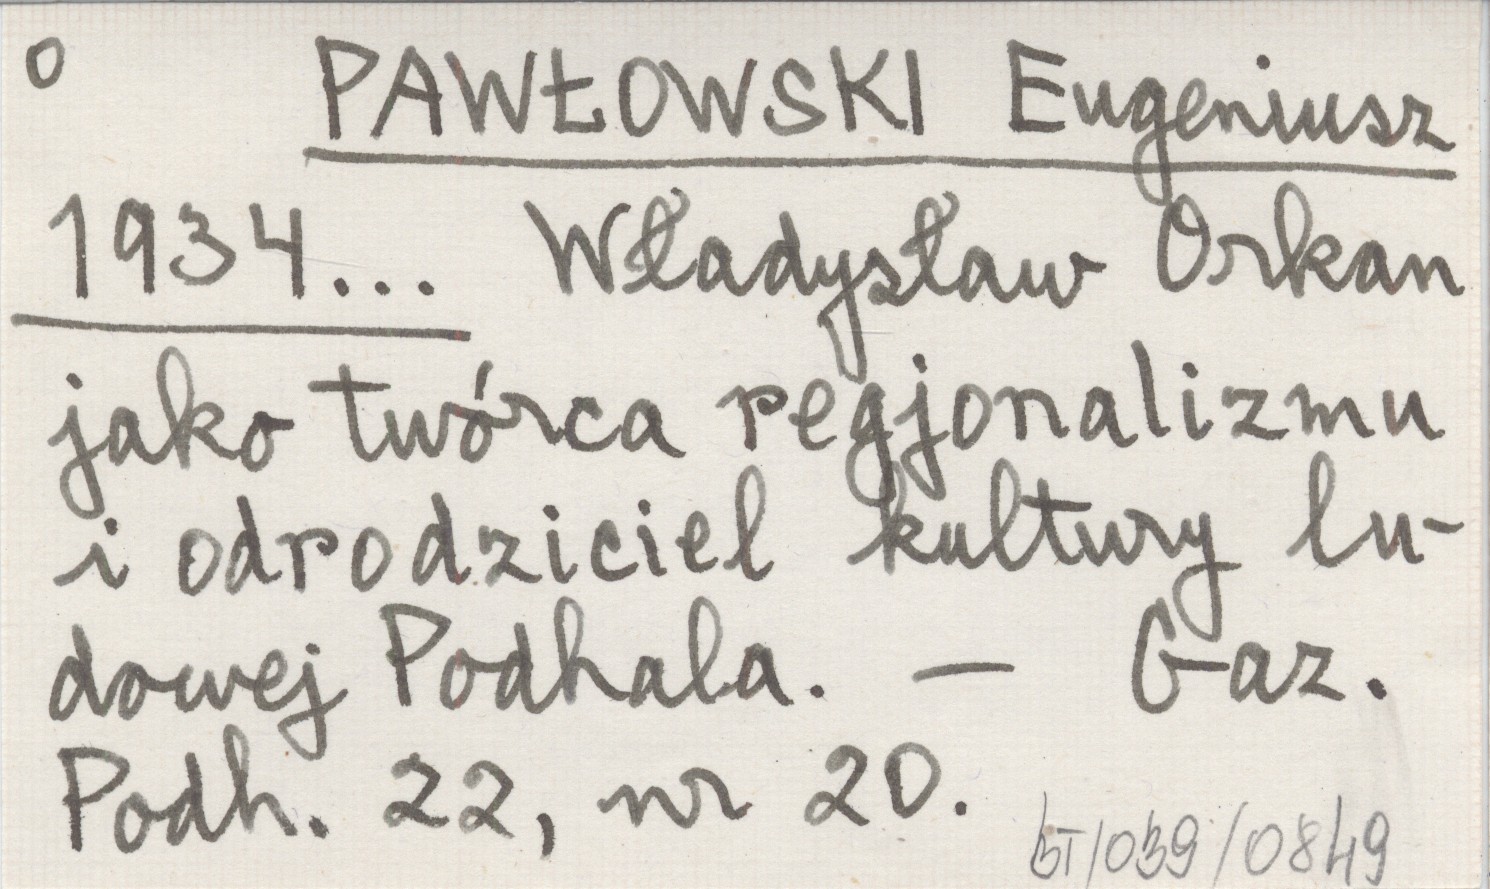 O PAWŁOWSKI Eugeniusz
1934... Władysław Orkan
jako twórca regjonalizmu
i odrodziciel kultury lu-
dowej Podhala. — Gaz.
Podh. 22, nr 20.
BT/039/0849